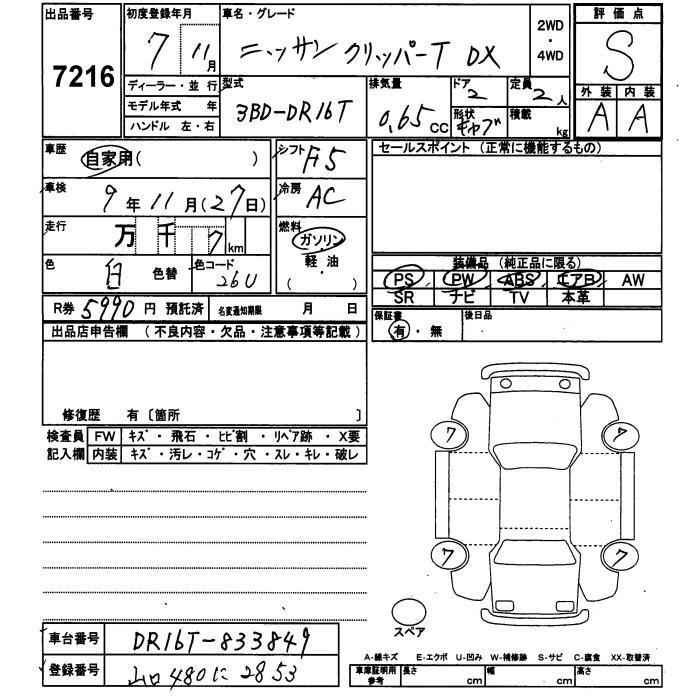 出品番号
7216
初度登録年月
7 11月
車名・グレード
ニッサン クリッパーT DX
2WD
・
4WD
評価点
S
外装 内装
A A
ディーラー・並行
モデル年式 年
ハンドル 左・右
型式
3BD-DR16T
排気量
0.65 CC
ドア
2
定員
2人
形状
キャブ
積載
kg
車歴
自家用( )
シフト
F5
セールスポイント (正常に機能するもの)
車検
9年11月(27日)
冷房
AC
走行
万 千 7 km
燃料
ガソリン
軽・油
( )
色
白 色替
色コード
26U
装備品 (純正品に限る)
PS PW ABS エアB AW
SR ナビ TV 本革
R券 5990円 預託済
名変通知期限 月 日
保証書
有・無
後日品
出品店申告欄 (不良内容・欠品・注意事項等記載)
修復歴 有〔箇所 〕
検査員
記入欄
FW キズ・飛石・ヒビ割・リペア跡・X要
内装 キズ・汚レ・コゲ・穴・スレ・キレ・破レ
7 7
7 7
スペア
車台番号
DR16T-833849
登録番号
山口480に2853
A-線キズ E-エクボ U-凹み W-補修跡 S-サビ C-腐食 XX-取替済
車庫証明用
参考
長さ cm 幅 cm 高さ cm